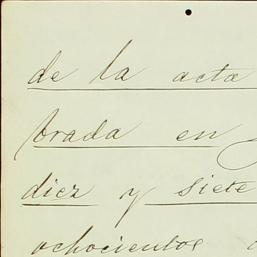 de la acta
brada en
diez y siete
ochocientos